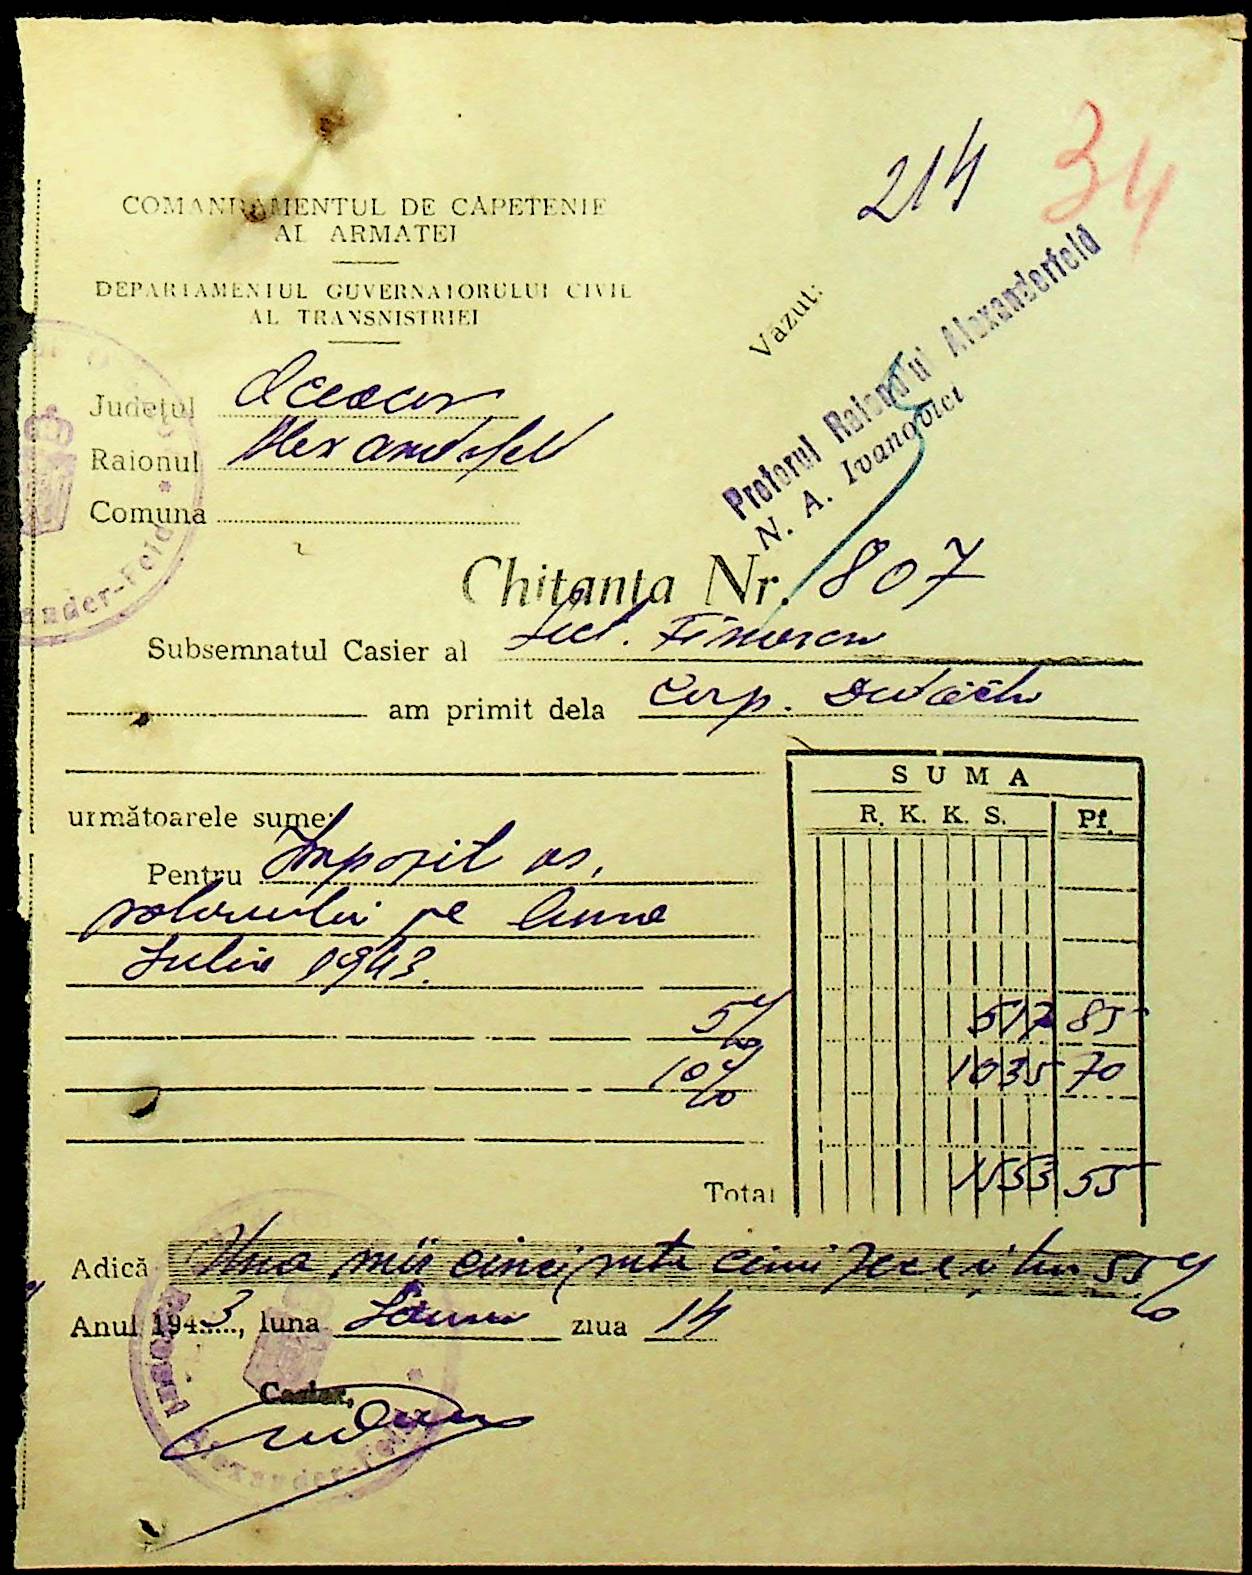 214
34
COMANDAMENTUL DE CAPETENIE
AL ARMATEI
DEPARTAMENTUL GUVERNATORULUI CIVIL
AL TRANSNISTRIEI
Văzut:
Pretorul Raionului Alexanderfeld
N. A. Ivanovici
Judeţul
Raionul Alexanderfeld
Comuna
Chitanţa Nr. 807
Subsemnatul Casier al
am primit dela
următoarele sume:
Pentru Impozit as.
pe luna
Iulie 1943.
SUMA
R. K. K. S. Pf.
5% 517 85
10% 1035 70
Total 1553 55
Adică Una mii cinci sute cinci zeci şi trei 55%
Anul 1943, luna ziua 14
Casier,
Alexander-Feld